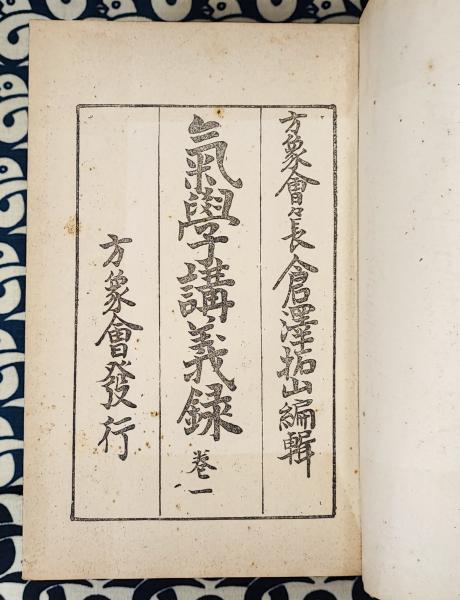 方象會々長倉澤拓山編輯
氣學講義録 巻一
方象會發行